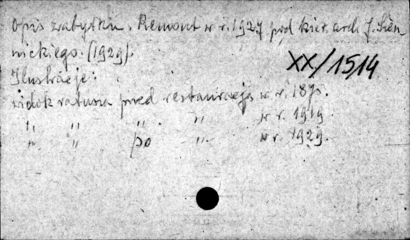 Opis zabytku. Remont w r. 1927 pod kier. arch. J. Sien
nickiego. (1929).
XX/1514
Ilustracje:
widok ratusza przed restauracją w r. 187.
" " " " w r. 1919.
" " po " w r. 1929.